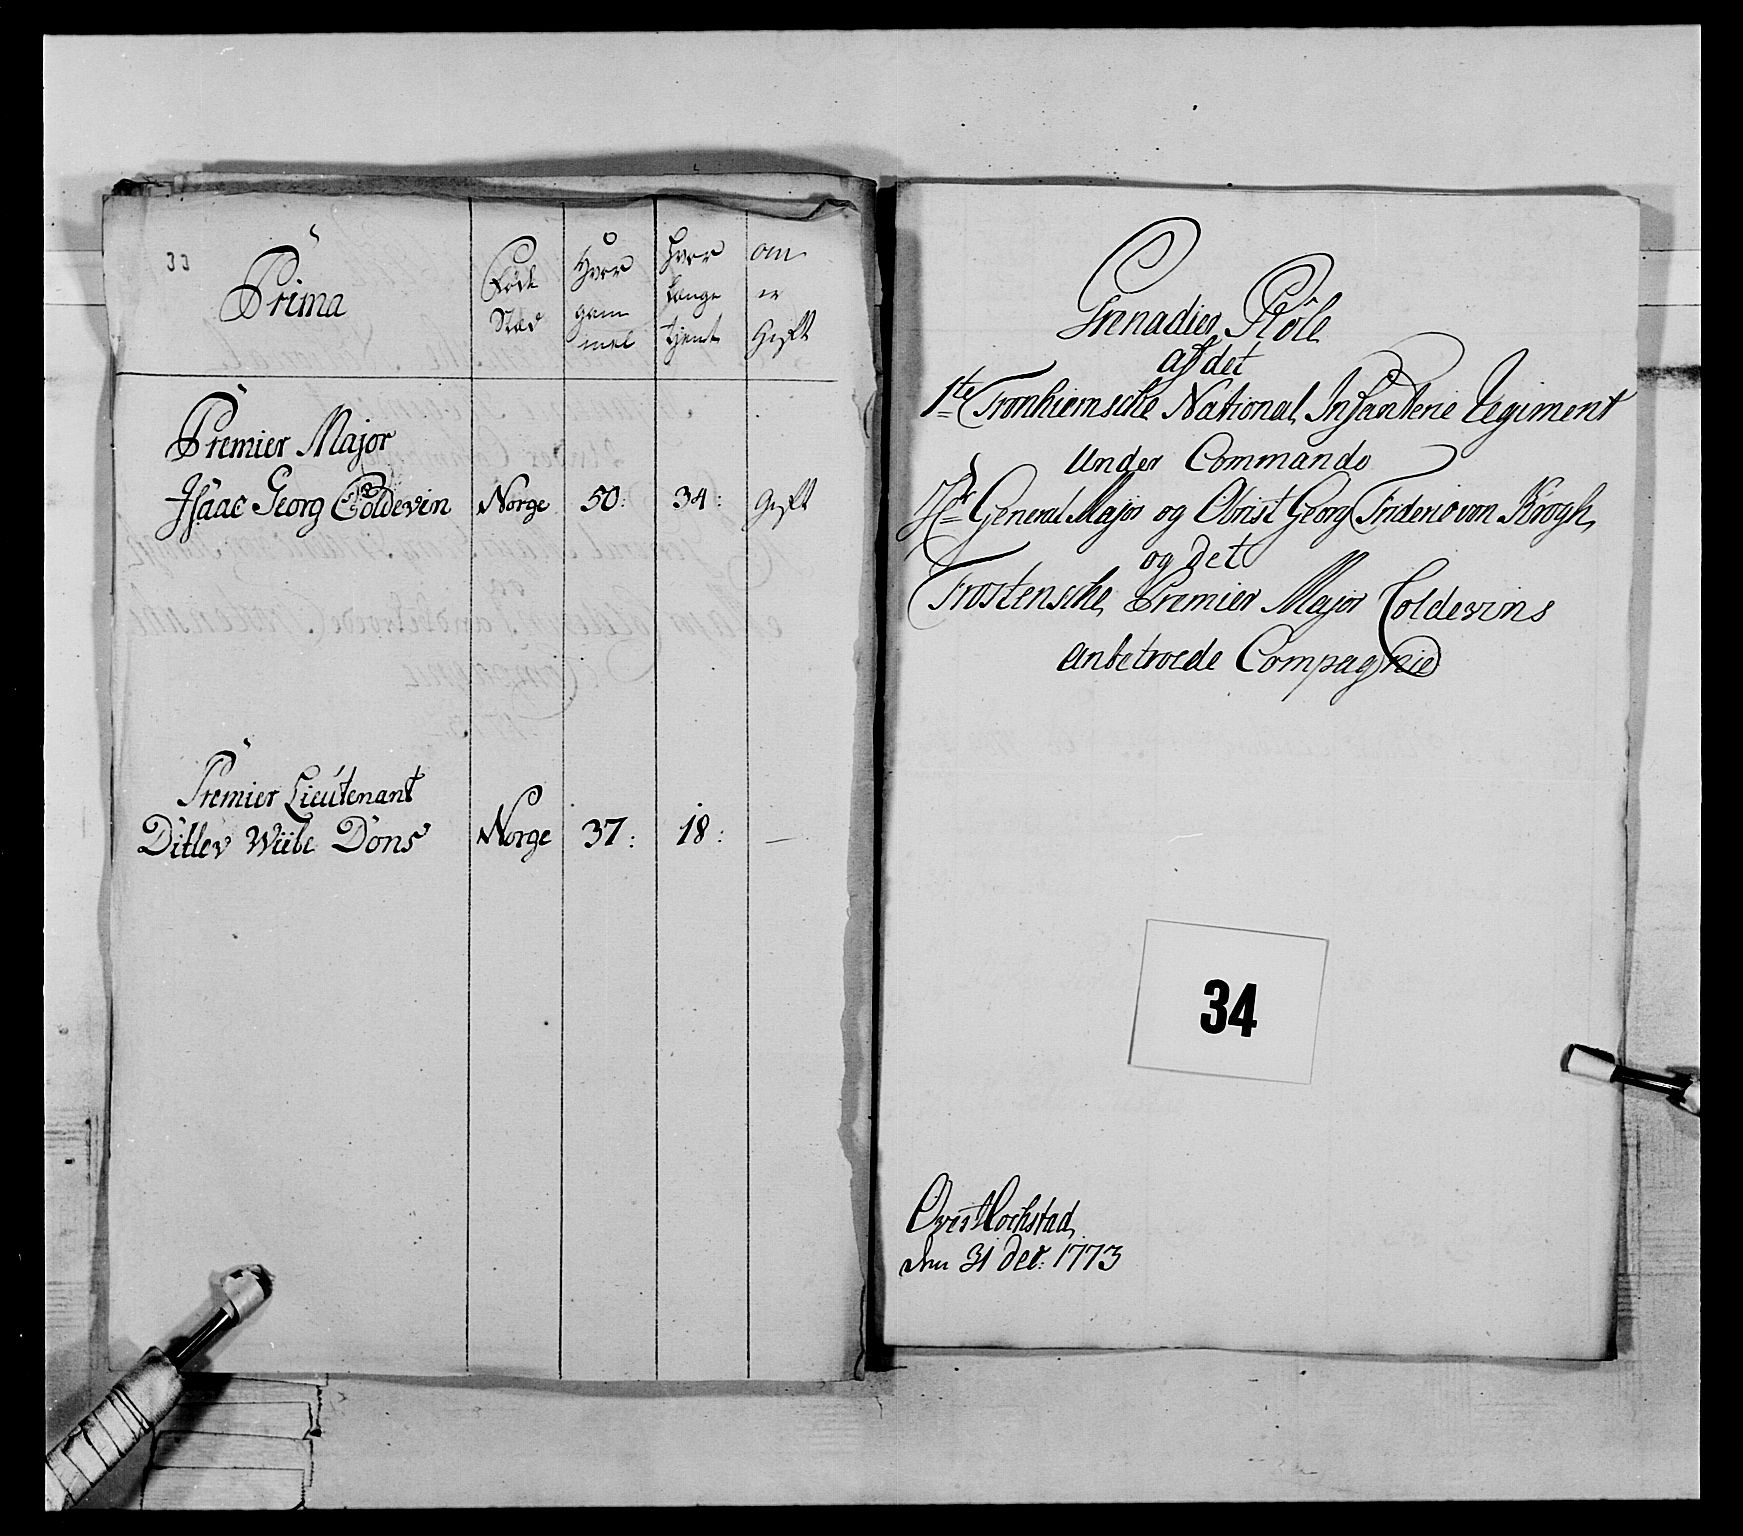 33
Prima
Føde Stæd
Hvor gam mel
Hvor længe tjent
om er Gift
Premier Major
Isaac Georg Coldevin Norge 50: 34: Gift
Premier Lieutenant
Ditlev Wiibe Döns Norge 37: 18: —
Grenadier Rolle
af det
1ste Tronhiemsche National Infanterie Regiment
Under Commando
Hr General Major og Obrist Georg Frideric von Krogh,
og det
Frostensche Premier Major Coldevins
anbetroede Compagnie
34
Overst Hochstad,
den 31 Dec: 1773